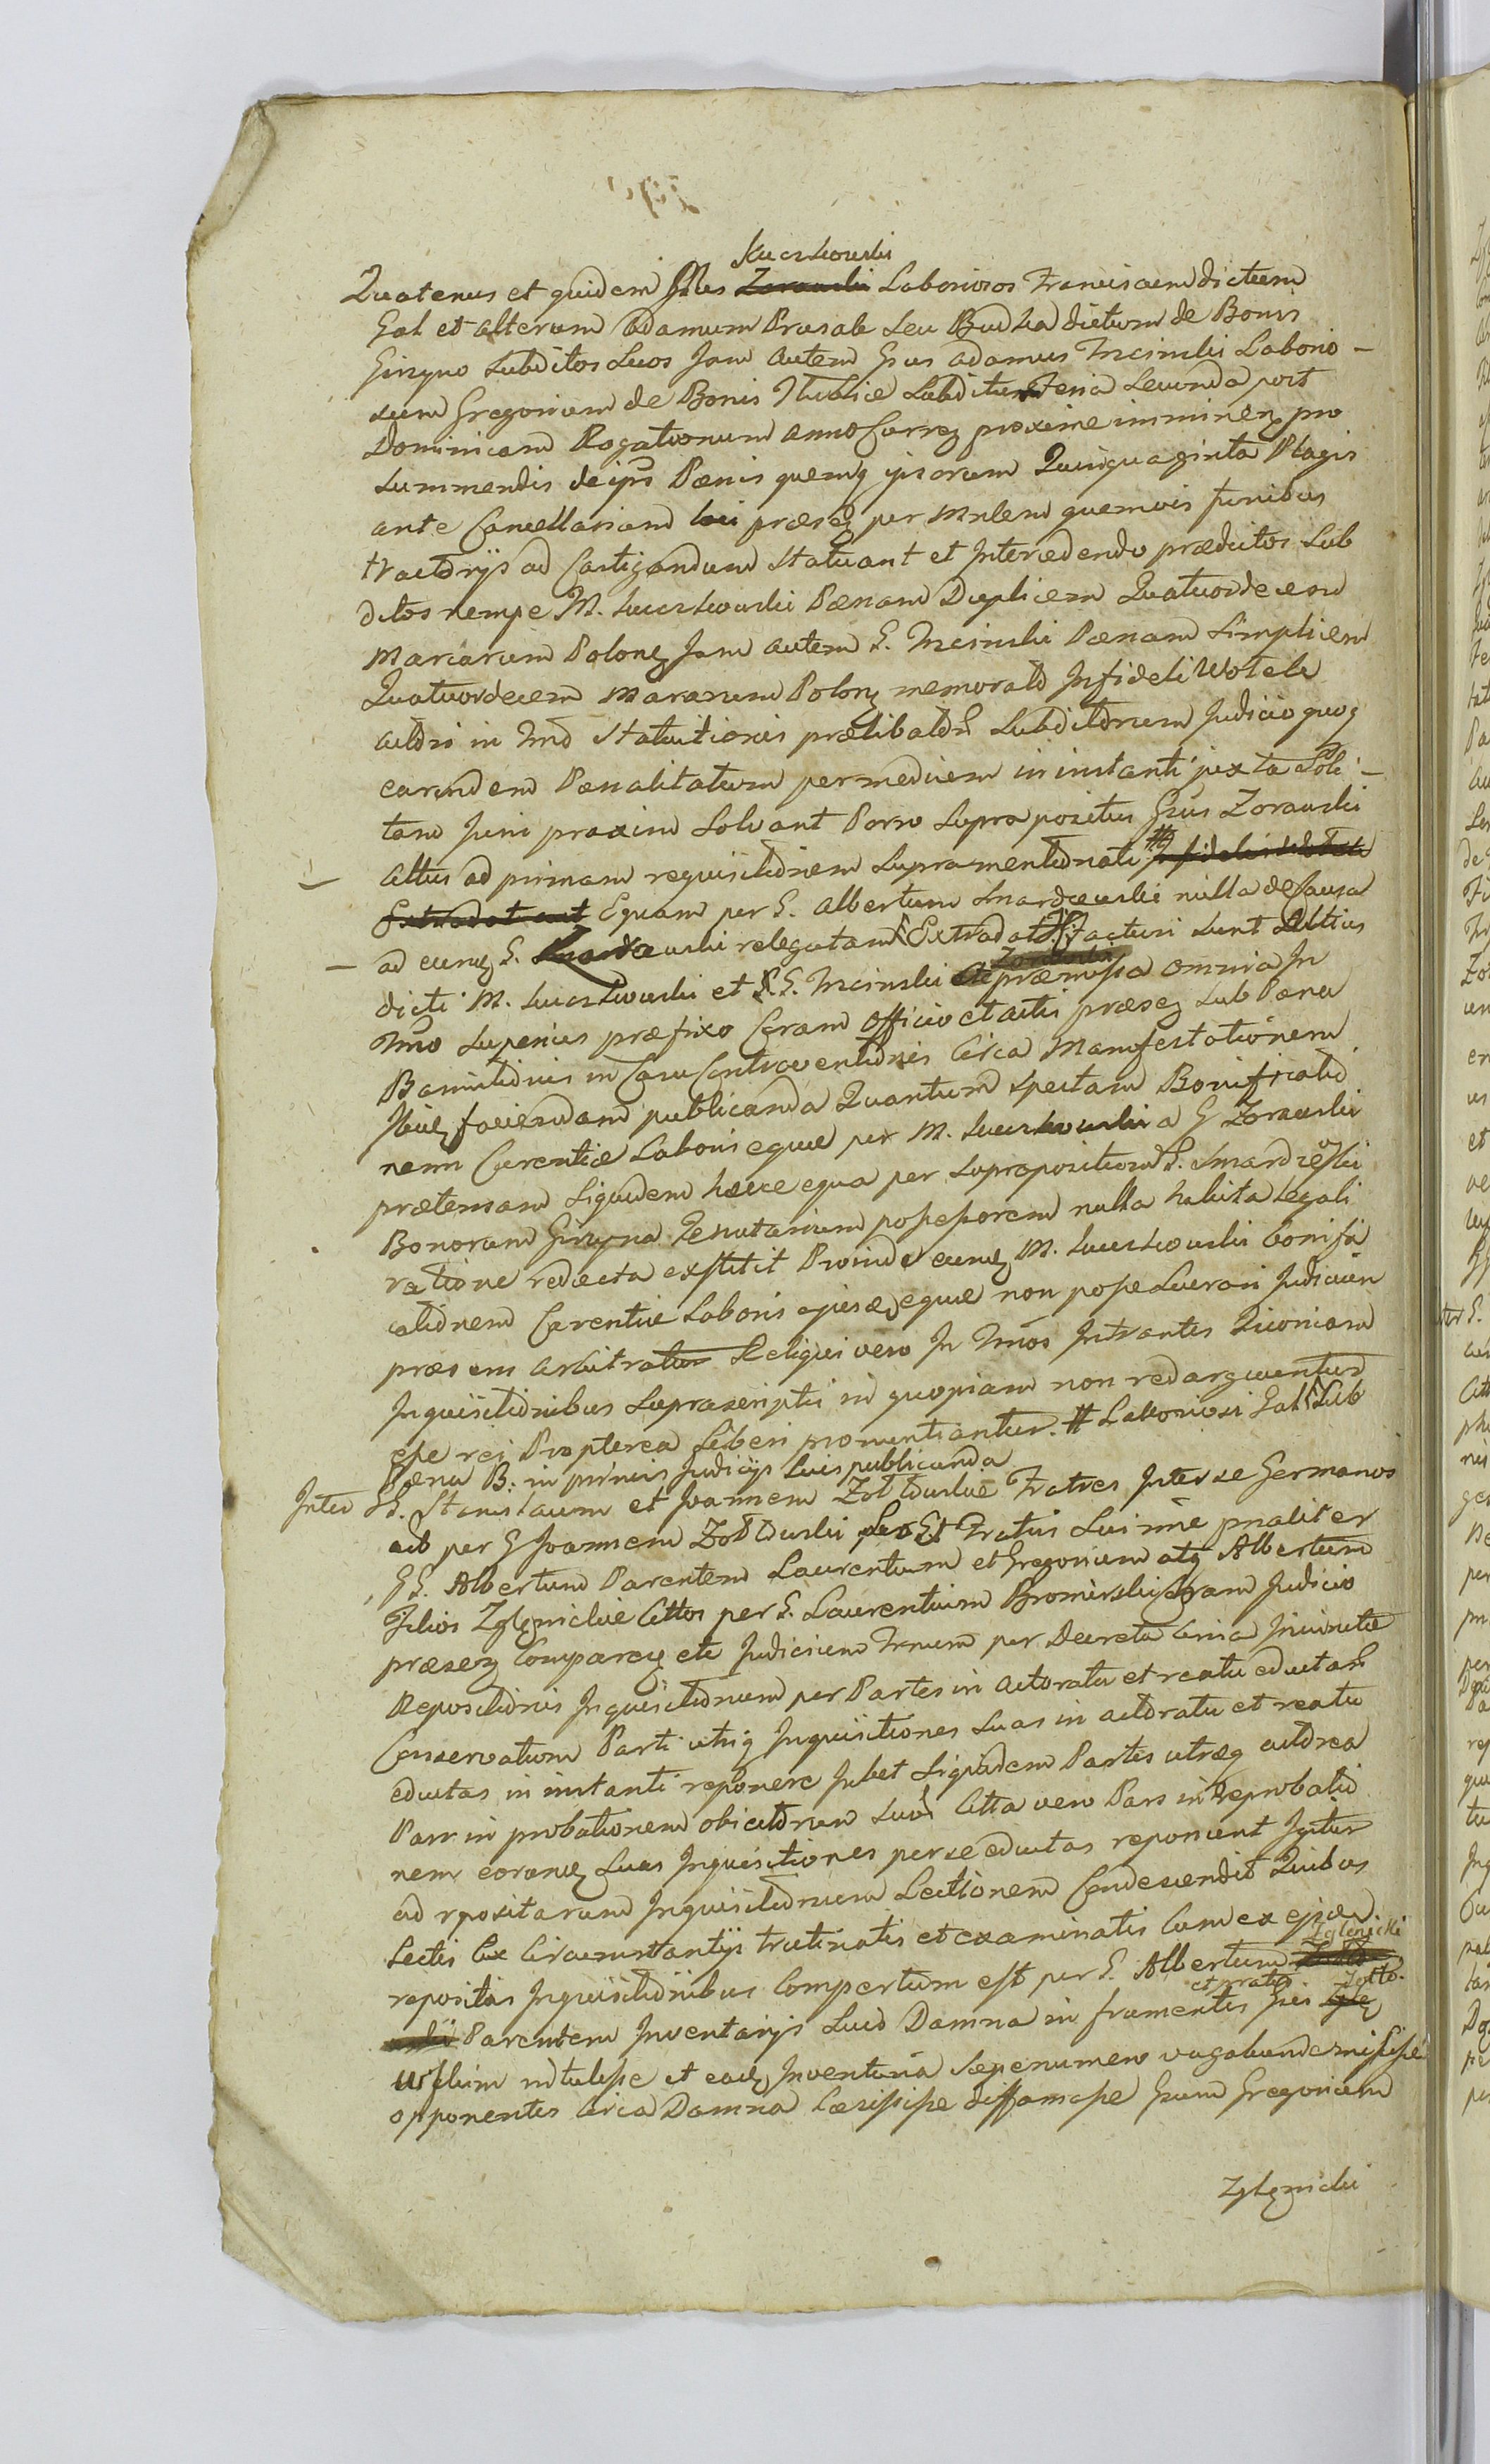 Kuczkowski
Quatenus et quidem Mus Zorawski Laboriosos Franciscum dictum
Gal et alterum Adamum Prusak seu Buchta dictum de Bonis
Gizyno subditos suos Jam autem Gsus Adamus Mcinski Laborio-
sum Gregorium de Bonis subditum Feria secunda post
Dominicam Rogationum anno Currenz proxime imminenz pro
summendis de ipsis Pænis quemq ipsorum Quinquaginta Plagis
ante Cancellariam præsenz per Mnlem quemvis funibus
tractorijs ad Castigandum statuant et Intercedendo prædictos Sub
ditos nempe M. Kuczkowski Pænam Duplicem Quatuordecem
Marcarum Polonz Jam autem G. Mcinski Pænam simplicem
Quatuordecem Marcarum Polonz memorato Infideli Wotek
actori in Tmo Statuitionis prælibator Subditorum Judicio quoq
earundem Pænalitatum per medium in instanti juxta soli-
tam Juris praxim solvant Porro supra positus Gsus Zorawski
Cittus ad primam requisitionem supramentionati Infideli Wotek
Extradat aut Equam per G. Albertum Smardzewski nulla de Causa
ad eumq G. Smardzewski relegatam Extradat facturi sunt Altius
Zorawski
dicti M. Kuczkowski et G. Mcinski ac præmissa omnia In
Tmo superius præfixo Coram Officio et actis præsenz sub Pæna
Bannitionis in Casu Contraventionis Circa Manifestationem
Ibidz faciendam publicanda Quantum spectam Bonificatio
nem Carentiæ Laboris equæ per M. Kuczkowski a G Zorawski
prætensam siquidem hæcce equa per suprapositum G. Smardzewski
Bonorum Gizyna Tenutarium possessorem nulla habita legali
ratione redacta extitit Proinde eumq M. Kuczkowski bonifi
cationem Carentiæ Laboris ejusd equæ non posse Lucrari Judicium
præsens arbitratur Reliqui vero In Tmos Intrantes siquidem
Inquisitionibus suprascriptis in quopiam non redarguuntur
esse rei Propterea liberi pronuntiantur. # Laboriosi Gal Sub
Pæna B: in primis Judicijs suis publicanda
Inter GG. Stanislaum et Joannem Zottowskie Fratres Inter se Germanos
act per G Joannem Zottowski suo et Fratris sui nne pnaliter
GG. Albertum Parentem Laurentium et Gregorium atq Albertum
Filios Zglenickie Cittos per G. Laurentium Bromirski Coram Judicio
præsenz Comparenz etc Judicium Trnum per Decreta Circa
Repositionis Inquisitionum per Partes in actoratu et reatu eductar
Conservatum Parti utriq Inquisitiones suas in actoratu et reatu
eductas in instanti reponere Jubet siquidem Partes utræq actorea
Pars in probationem obictorum suor Citta vero Pars in Reprobatio
nem eorumq suas Inquisitiones per se eductas reponunt Igitur
ad repositarum Inquisitionum Lectionem Condescendit Quibus
Lectis Ex Circumstantijs trutinatis et examinatis Cum ex ejusd.
Zglenicki
repositis Inquisitionibus Compertum est per G. Albertum
et pratis Zotto.
Parentem Inventarijs suis Damna in frumentis Gsis Zgle
wskim intulisse et eadq Inventaria sæpenumero vagabunde misisse
opponentes Circa Damna Cæsisse diffamasse Gsum Gregorium
Zglenicki